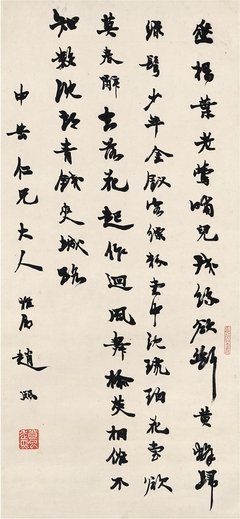 垂楊葉老鶯哺兒殘絲欲斷黃蜂歸
綠鬢少年金釵客縹粉壺中沈琥珀花臺欲
莫春辭去落花起作迴風舞榆莢相催不
知數沈郎青錢夾城路
仁兄大人 雅屬 趙